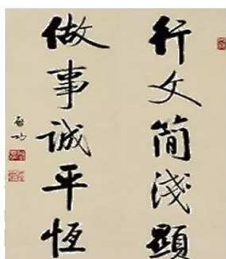 行文简浅顯
做事诚平恆
启功